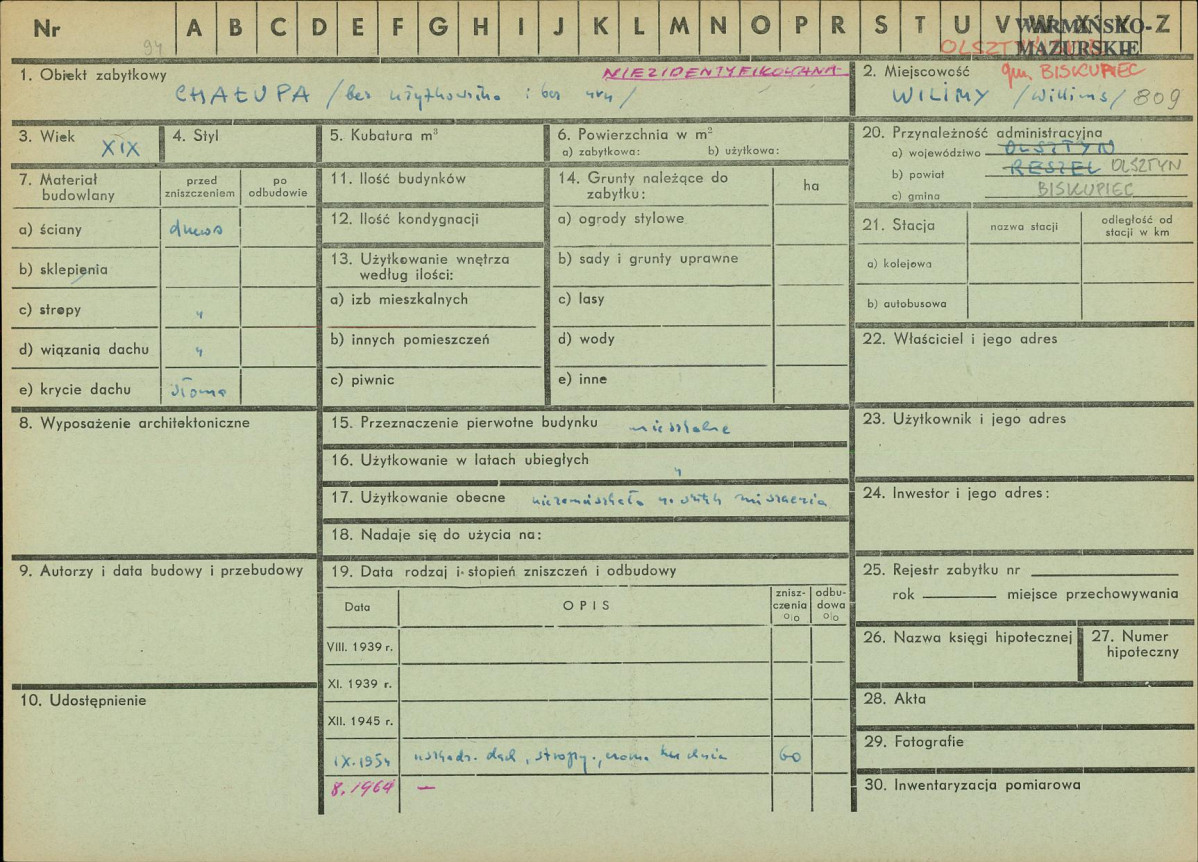 Nr 94 A B C D E F G H I J K L M N O P R S T U V W X Y Z
WARMIŃSKO-
MAZURSKIE
OLSZTYN
1. Obiekt zabytkowy
NIEZIDENTYFIKOWANA
CHAŁUPA /bez użytkownika i bez nru/
2. Miejscowość
gm. BISKUPIEC
WILIMY /Willims/ 809
3. Wiek XIX
4. Styl
5. Kubatura m³
6. Powierzchnia w m²
a) zabytkowa: b) użytkowa:
7. Materiał budowlany
przed zniszczeniem
po odbudowie
a) ściany drewno
b) sklepienia
c) stropy "
d) wiązania dachu "
e) krycie dachu słoma
8. Wyposażenie architektoniczne
9. Autorzy i data budowy i przebudowy
10. Udostępnienie
11. Ilość budynków
12. Ilość kondygnacji
13. Użytkowanie wnętrza
według ilości:
a) izb mieszkalnych
b) innych pomieszczeń
c) piwnic
14. Grunty należące do
zabytku:
ha
a) ogrody stylowe
b) sady i grunty uprawne
c) lasy
d) wody
e) inne
15. Przeznaczenie pierwotne budynku mieszkalne
16. Użytkowanie w latach ubiegłych "
17. Użytkowanie obecne niezamieszkała
18. Nadaje się do użycia na:
19. Data rodzaj i stopień zniszczeń i odbudowy
Data
OPIS
znisz-
czenia
o|o
odbu-
dowa
o|o
VIII. 1939 r.
XI. 1939 r.
XII. 1945 r.
IX.1954 uszkodz. dach, stropy, 60
8.1964 —
20. Przynależność administracyjna
a) województwo OLSZTYN
b) powiat RESZEL OLSZTYN
c) gmina BISKUPIEC
21. Stacja
nazwa stacji
odległość od
stacji w km
a) kolejowa
b) autobusowa
22. Właściciel i jego adres
23. Użytkownik i jego adres
24. Inwestor i jego adres:
25. Rejestr zabytku nr
rok miejsce przechowywania
26. Nazwa księgi hipotecznej
27. Numer
hipoteczny
28. Akta
29. Fotografie
30. Inwentaryzacja pomiarowa